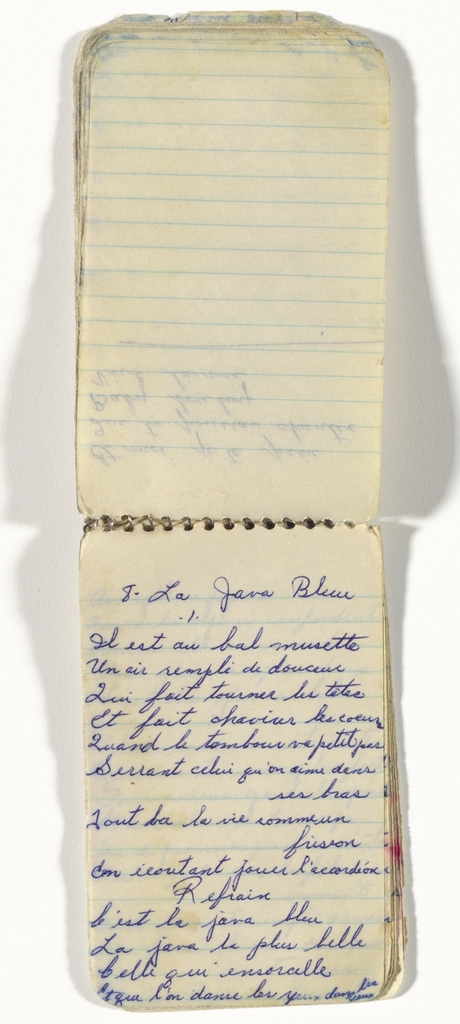 8- La Java Bleue
.1.
Il est au bal musette
Un air rempli de douceur
Qui fait tourner les tetes
Et fait chavirer les coeurs
Quand le tambour va petit pas
Serrant celui qu'on aime dans
ses bras
Tout bas la vie comme un
frisson
En ecoutant jouer l'accordéon
Refrain
C'est la java bleu
La java la plus belle
Celle qui ensorcelle
Et que l'on danse les yeux dans les
yeux